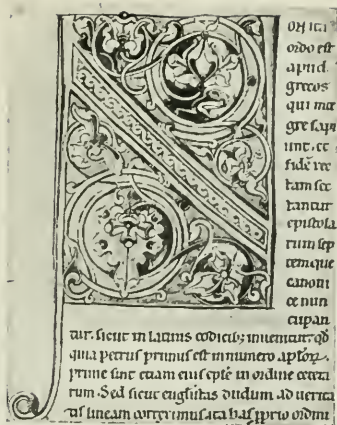 N
on ita
ordo est
apud
grecos
qui inte
gre sapi
unt. et
fidē rec
tam sec
tantur
epistola
rum sep
temque
canoni
ce nun
cupan
tur. sicut in latinis codicib; inuenitur. qđ
quia petrus primus est in numero aptoꝝ.
prime sint etiam eius epłe in ordine cetera
rum. Sed sicut eugłistas dudum ad uerita
tis lineam correximus. ita has pprio ordini